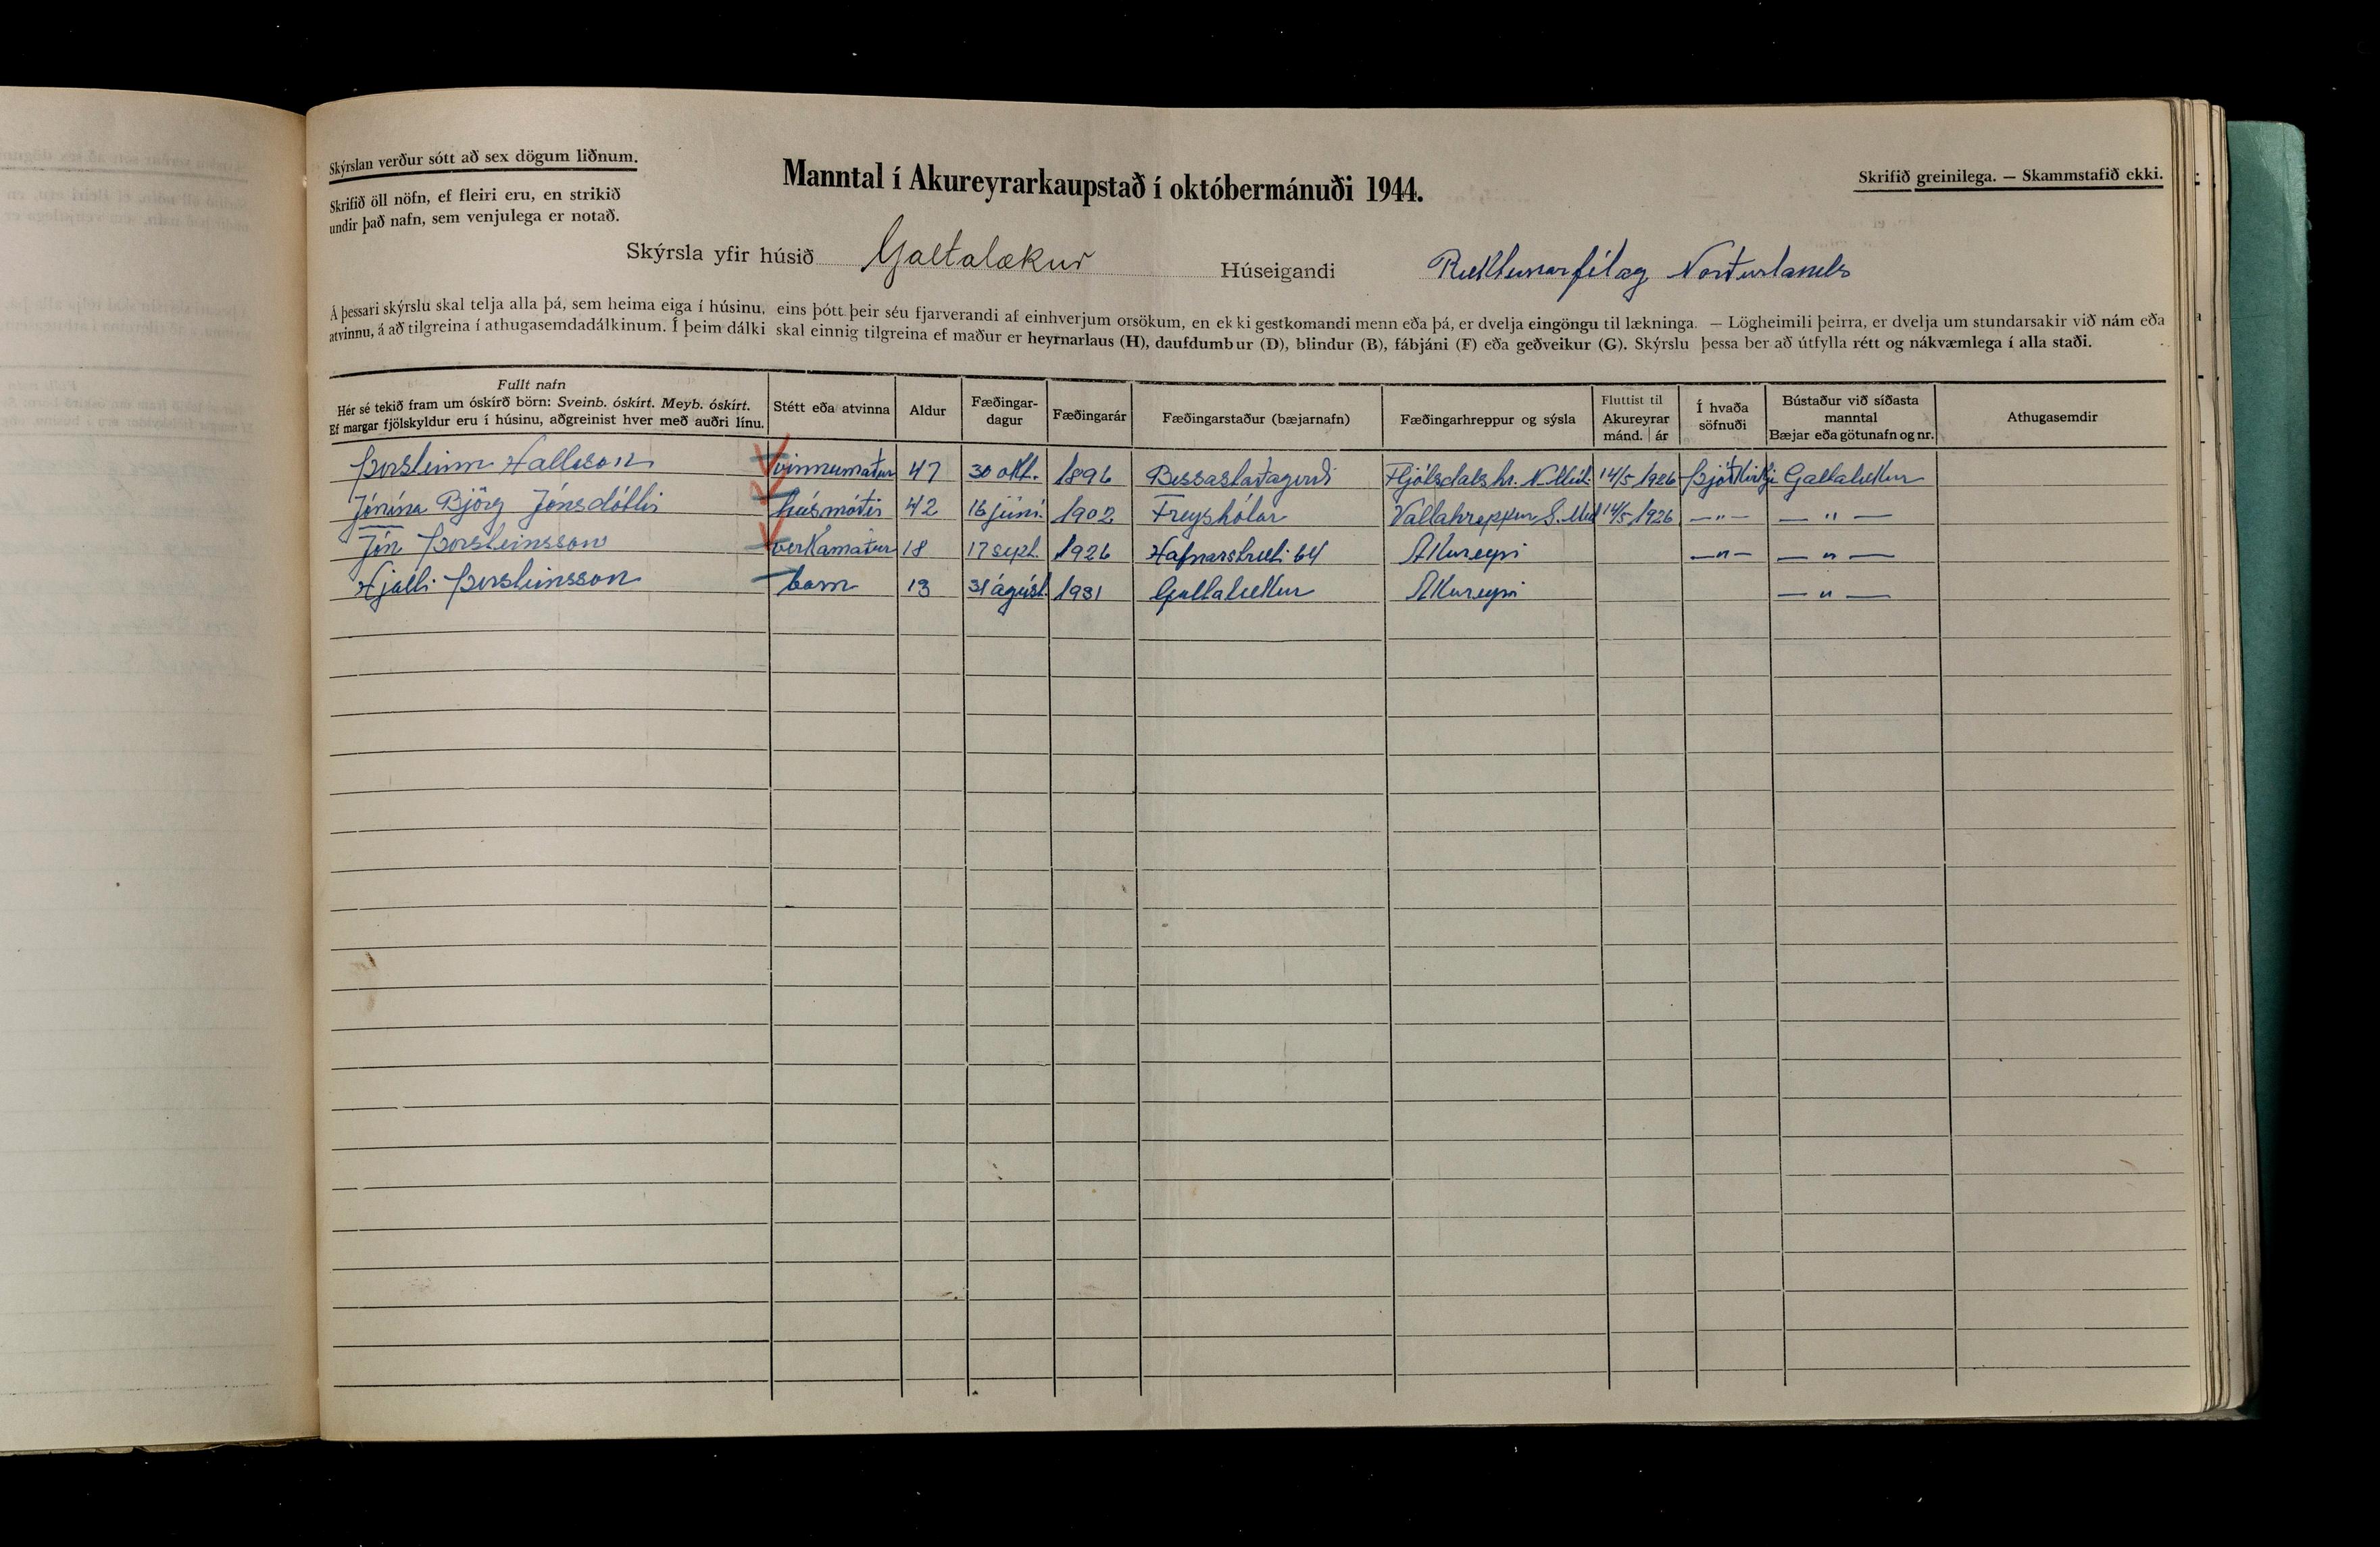 Skýrslan verður sótt að sex dögum liðnum.
Skrifið öll nöfn, ef fleiri eru, en strikið
undir það nafn, sem venjulega er notað.
Manntal í Akureyrarkaupstað í októbermánuði 1944.
Skrifið greinilega. — Skammstafið ekki.
Skýrsla yfir húsið Galtalækur Húseigandi Ræktunarfélag Norðurlands
Á þessari skýrslu skal telja alla þá, sem heima eiga í húsinu, eins þótt þeir séu fjarverandi af einhverjum orsökum, en ekki gestkomandi menn eða þá, er dvelja eingöngu til lækninga. — Lögheimili þeirra, er dvelja um stundarsakir við nám eða
atvinnu, á að tilgreina í athugasemdadálkinum. Í þeim dálki skal einnig tilgreina ef maður er heyrnarlaus (H), daufdumbur (D), blindur (B), fábjáni (F) eða geðveikur (G). Skýrslu þessa ber að útfylla rétt og nákvæmlega í alla staði.
Fullt nafn
Hér sé tekið fram um óskírð börn: Sveinb. óskírt. Meyb. óskírt.
Ef margar fjölskyldur eru í húsinu, aðgreinist hver með auðri línu.
Stétt eða atvinna
Aldur
Fæðingar-
dagur
Fæðingarár
Fæðingarstaður (bæjarnafn)
Fæðingarhreppur og sýsla
Fluttist til
Akureyrar
mánd. | ár
Í hvaða
söfnuði
Bústaður við síðasta
manntal
Bæjar eða götunafn og nr.
Athugasemdir
Þorsteinn Hallsson vinnumaður 47 30 okt. 1896 Bessastaðagerði Fljótsdalshr. N.Múl. 14/5 1926 Þjóðkirkju Galtalækur
Jónína Björg Jónsdóttir húsmóðir 42 16 júní 1902 Freyshólar Vallahreppur S.Múl 14/5 1926 — " — — " —
Jón Þorsteinsson verkamaður 18 17 sept. 1926 Hafnarstræti 64 Akureyri — " — — " —
Hjalti Þorsteinsson barn 13 31 ágúst. 1931 Galtalækur Akureyri — " —